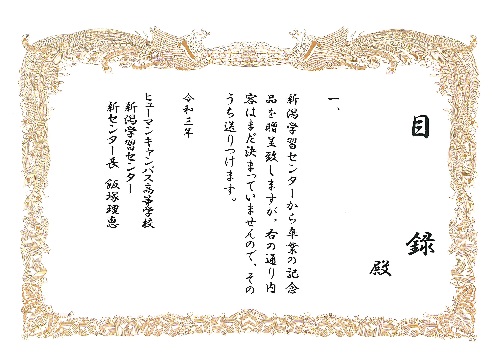 目録
殿
一、
新潟学習センターから卒業の記念
品を贈呈致しますが、右の通り内
容はまだ決まっていませんので、その
うち送りつけます。
令和三年
ヒューマンキャンパス高等学校
新潟学習センター
新センター長 飯塚理恵